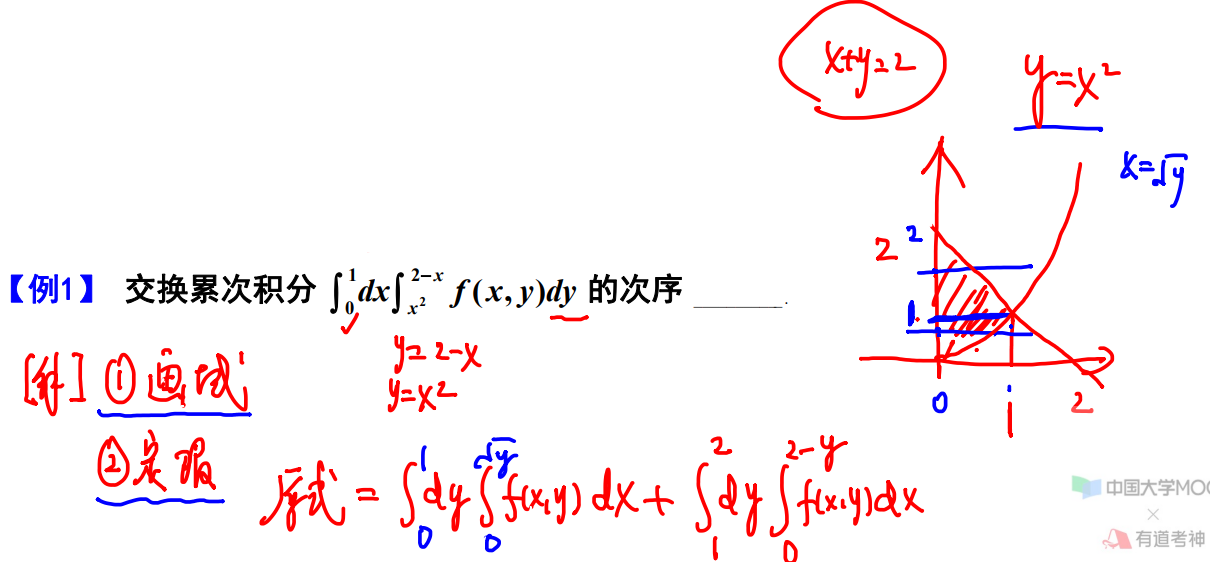 x+y=2
y=x²
x=√y
2
2
1
0
1
2
【例1】 交换累次积分 ∫₀¹dx∫_{x²}^{2−x} f(x,y)dy 的次序 ______.
y=2-x
y=x²
[解] ① 画域
② 定限
原式 = ∫₀¹dy∫₀^{√y} f(x,y)dx + ∫₁²dy∫₀^{2-y} f(x,y)dx
中国大学MOO
×
有道考神